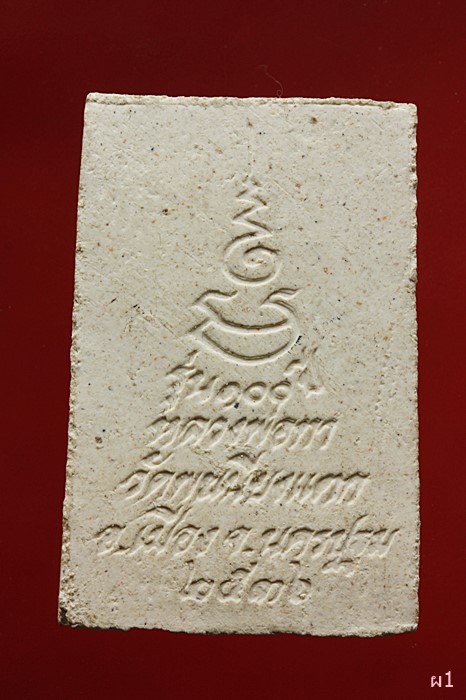 รุ่น๑๐๐ปี
หลวงพ่อทา
วัดพะเนียงแตก
อ.เมือง จ.นครปฐม
๒๕๓๖
ผ1